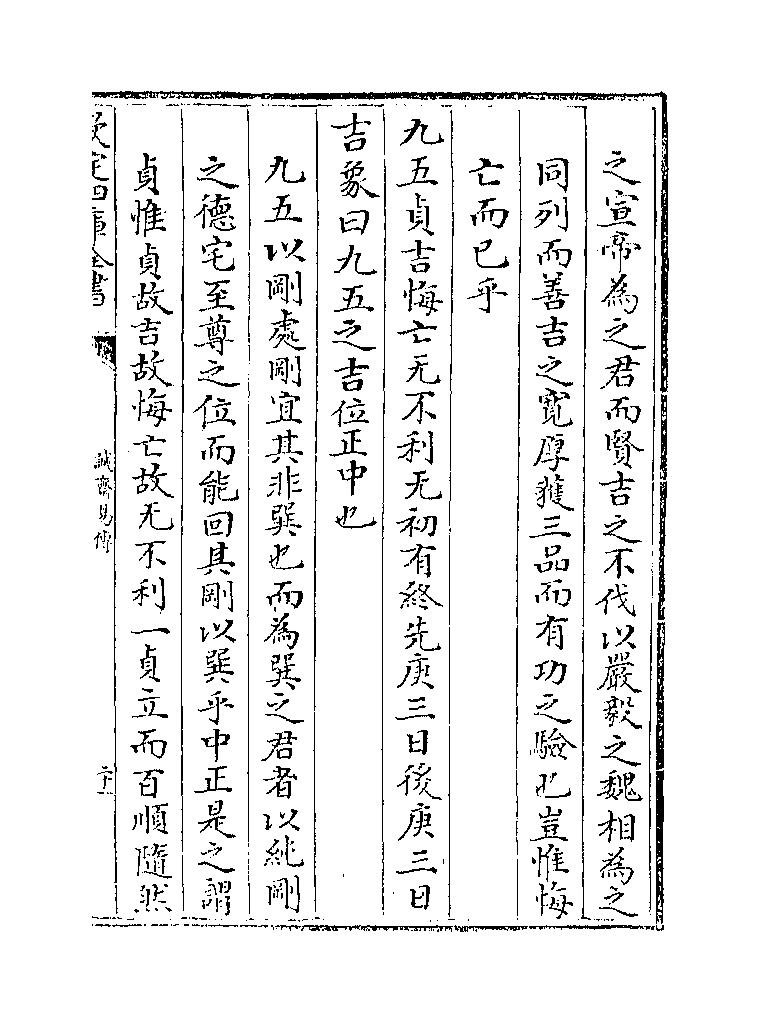 之宣帝為之君而賢吉之不伐以嚴毅之魏相為之
同列而善吉之寛厚獲三品而有功之驗也豈惟悔
亡而已乎
九五貞吉悔亡无不利无初有終先庚三日後庚三日
吉象曰九五之吉位正中也
九五以剛處剛宜其非巽也而為巽之君者以純剛
之德宅至尊之位而能回其剛以巽乎中正是之謂
貞惟貞故吉故悔亡故无不利一貞立而百順隨然
欽定四庫全書
誠齋易傳
二十一